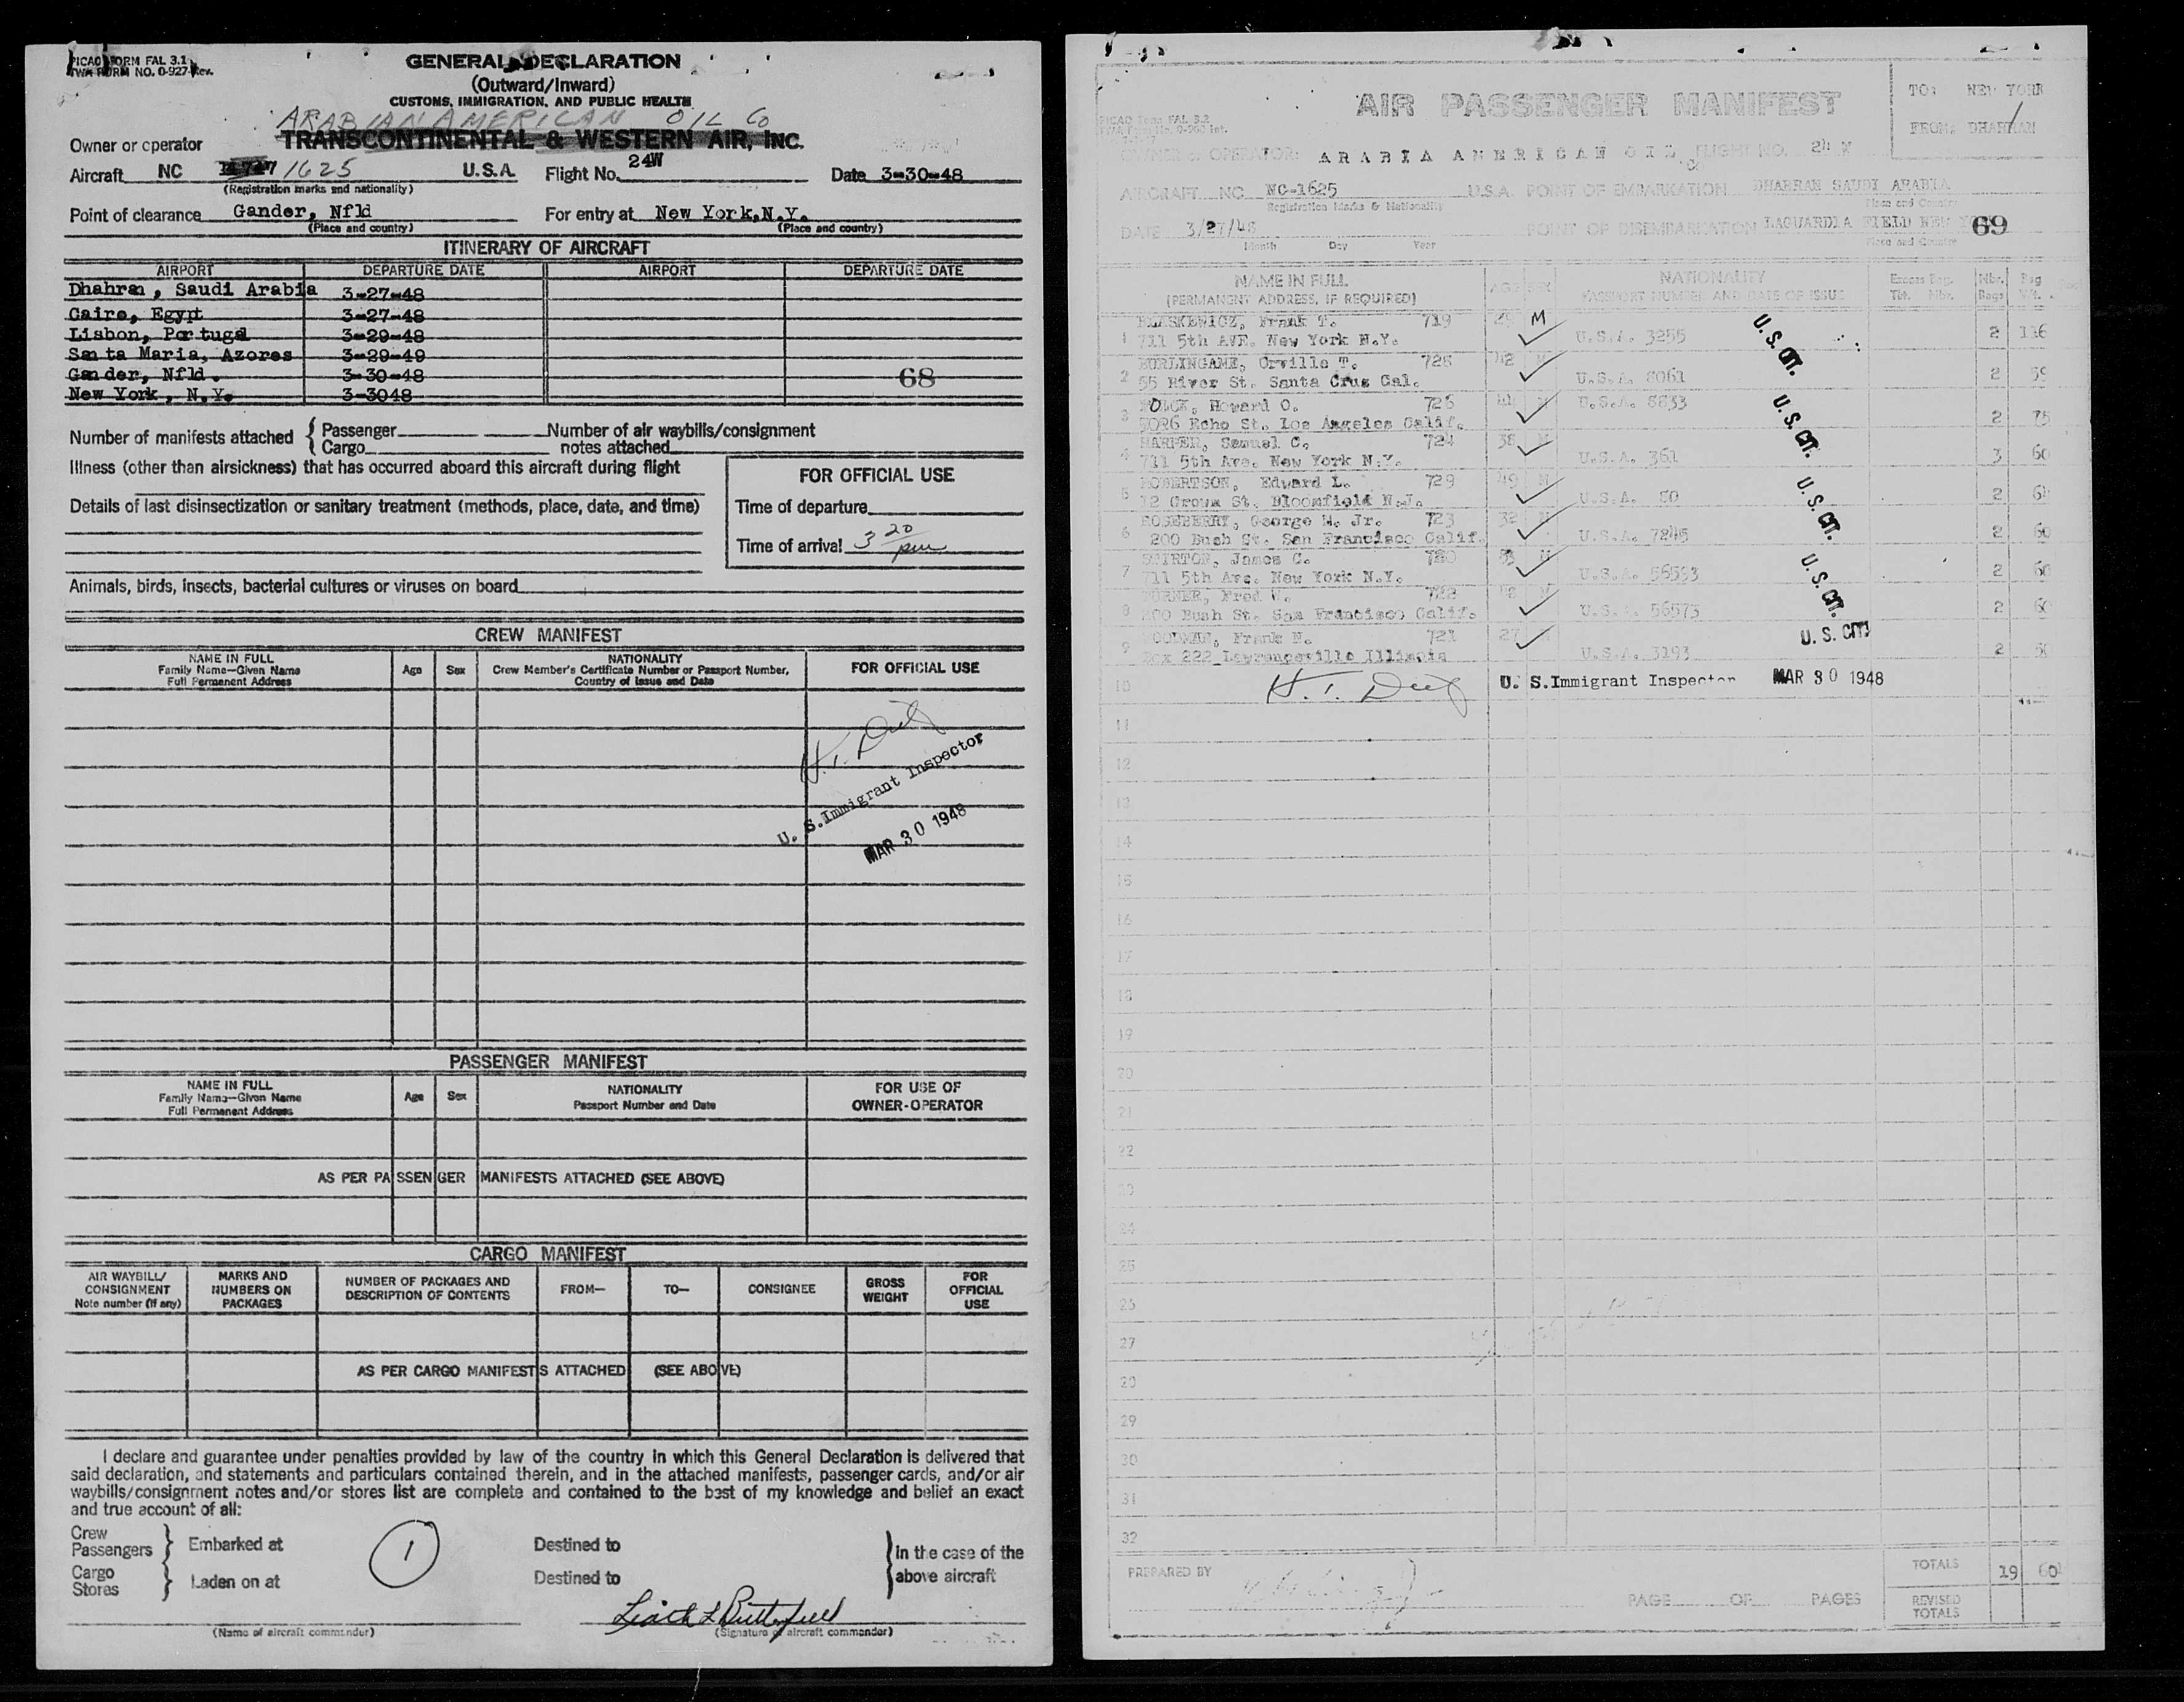 PICAO FORM FAL 3.1
TWA FORM NO. 0-927-Rev.
GENERAL DECLARATION
(Outward/Inward)
CUSTOMS, IMMIGRATION, AND PUBLIC HEALTH
ARABIAN AMERICAN OIL Co
Owner or operator TRANSCONTINENTAL & WESTERN AIR, INC.
Aircraft NC 1625 U.S.A. Flight No. 24W Date 3-30-48
(Registration marks and nationality)
Point of clearance Gander, Nfld For entry at New York,N.Y.
(Place and country) (Place and country)
ITINERARY OF AIRCRAFT
AIRPORT DEPARTURE DATE AIRPORT DEPARTURE DATE
Dhahran , Saudi Arabia 3-27-48
Cairo, Egypt 3-27-48
Lisbon, Portugal 3-29-48
Santa Maria, Azores 3-29-49
Gander, Nfld. 3-30-48 68
New York, N.Y. 3-3048
Number of manifests attached { Passenger Number of air waybills/consignment
Cargo notes attached
Illness (other than airsickness) that has occurred aboard this aircraft during flight
FOR OFFICIAL USE
Details of last disinsectization or sanitary treatment (methods, place, date, and time)
Time of departure
Time of arrival 3 20 pm
Animals, birds, insects, bacterial cultures or viruses on board
CREW MANIFEST
NAME IN FULL
Family Name—Given Name
Full Permanent Address
Age Sex
NATIONALITY
Crew Member's Certificate Number or Passport Number,
Country of Issue and Date
FOR OFFICIAL USE
U. S.Immigrant Inspector
MAR 30 1948
PASSENGER MANIFEST
NAME IN FULL
Family Name—Given Name
Full Permanent Address
Age Sex
NATIONALITY
Passport Number and Date
FOR USE OF
OWNER-OPERATOR
AS PER PASSENGER MANIFESTS ATTACHED (SEE ABOVE)
CARGO MANIFEST
AIR WAYBILL/
CONSIGNMENT
Note number (if any)
MARKS AND
NUMBERS ON
PACKAGES
NUMBER OF PACKAGES AND
DESCRIPTION OF CONTENTS
FROM— TO— CONSIGNEE
GROSS
WEIGHT
FOR
OFFICIAL
USE
AS PER CARGO MANIFESTS ATTACHED (SEE ABOVE)
I declare and guarantee under penalties provided by law of the country in which this General Declaration is delivered that
said declaration, and statements and particulars contained therein, and in the attached manifests, passenger cards, and/or air
waybills/consignment notes and/or stores list are complete and contained to the best of my knowledge and belief an exact
and true account of all:
Crew
Passengers } Embarked at 1 Destined to } in the case of the
Cargo
Stores } Laden on at Destined to above aircraft
(Name of aircraft commander) (Signature of aircraft commander)
AIR PASSENGER MANIFEST
TO: NEW YORK
FROM: DHAHRAN
PICAO Form FAL 3.2
OWNER or OPERATOR: ARABIA AMERICAN OIL Co FLIGHT NO. 24 W
AIRCRAFT NC NC-1625 U.S.A. POINT OF EMBARKATION DHAHRAN SAUDI ARABIA
Registration Marks & Nationality Place and Country
DATE 3/27/48 POINT OF DISEMBARKATION LAGUARDIA FIELD NEW 69
Month Day Year Place and Country
NAME IN FULL
(PERMANENT ADDRESS, IF REQUIRED)
AGE SEX
NATIONALITY
PASSPORT NUMBER AND DATE OF ISSUE
Excess Bag.
Tkt. Nbr.
Nbr. Bags
Bag Wt.
Frank T. 719 M
1 711 5th AVE. New York N.Y. U.S.A. 3255 U.S. CIT. 2 116
BURLINGAME, Orville T. 728 42 M
2 55 River St. Santa Cruz Cal. U.S.A. 8061 2 59
Howard O. 726 44 M U.S.A. 8833 U.S. CIT.
3 Echo St. Los Angeles Calif. 2 75
HARPER, Samuel C. 724 38 M
4 711 5th Ave. New York N.Y. U.S.A. 361 3 60
ROBERTSON, Edward L. 729 49 M U.S. CIT.
5 12 St. Bloomfield N.J. U.S.A. 80 2
ROSEBERRY, George M. Jr. 723 32 M
6 200 Bush St. San Francisco Calif. U.S.A. 7245 2 60
James C. 720 M U.S. CIT.
7 711 5th Ave. New York N.Y. U.S.A. 56593 2 60
Fred W. 722 M
8 200 Bush St. San Francisco Calif. U.S.A. 56573 2 60
Frank N. 721 27 M U.S. CIT
9 Box 222 Lawrenceville Illinois U.S.A. 3193 2 50
10 U. S.Immigrant Inspector MAR 30 1948
11
12
13
14
15
16
17
18
19
20
21
22
23
24
25
26
27
28
29
30
31
32
PREPARED BY
PAGE OF PAGES
TOTALS 19
REVISED
TOTALS